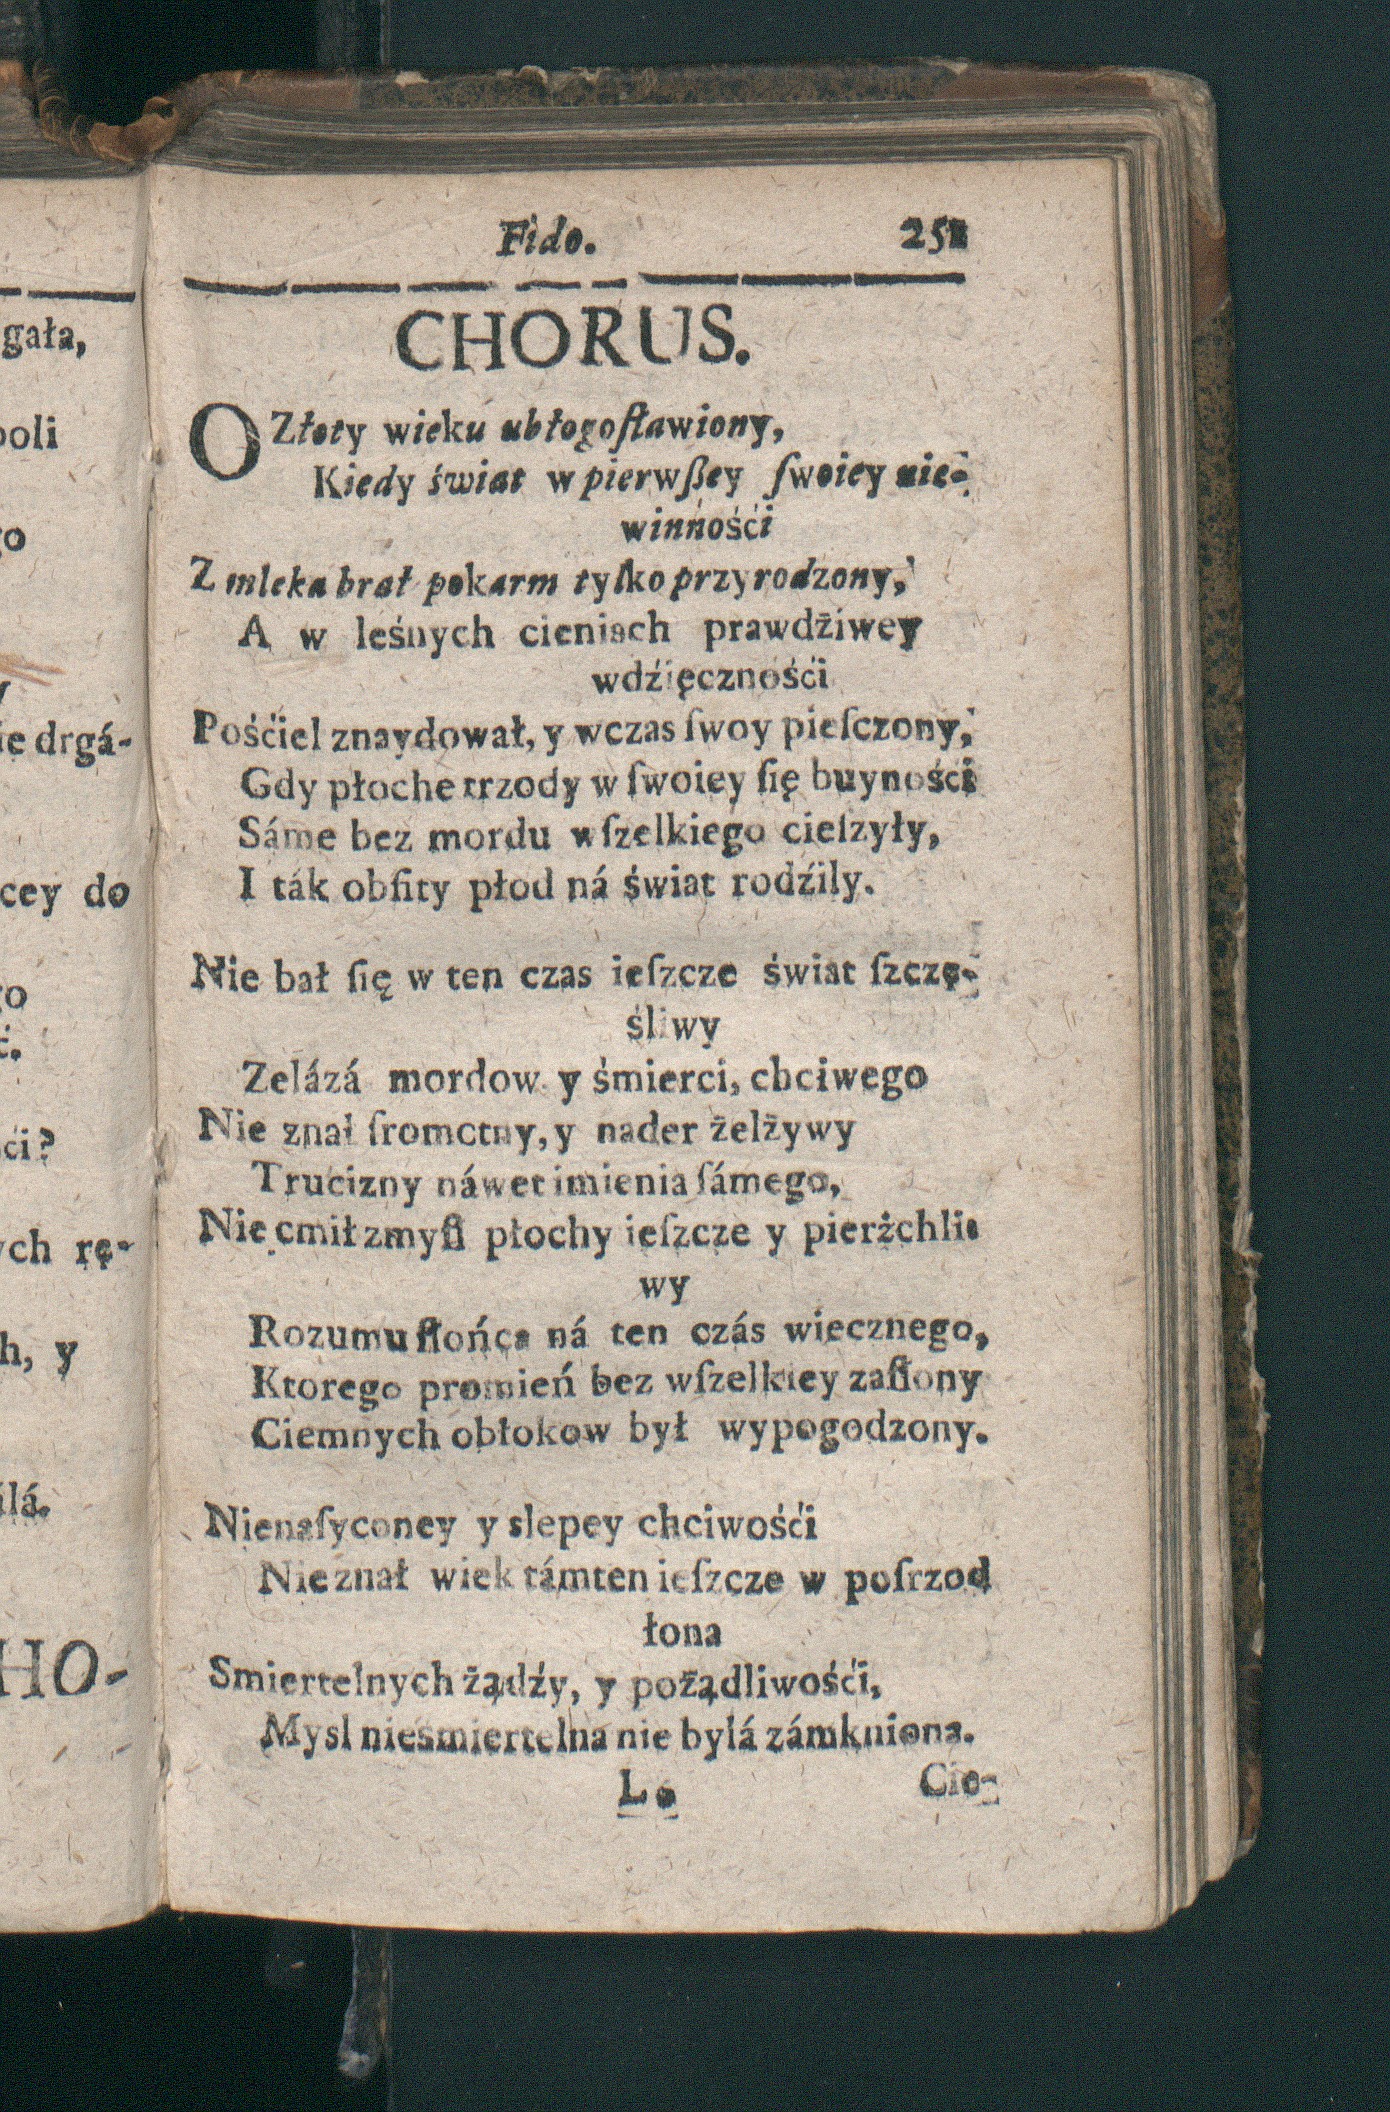 gała,
poli
go
y
ie drgá-
cey do
go
ć.
ści?
ych rę-
h, y
álá.
HO-
Fido. 251
CHORUS.
O Złoty wieku ubłogoſławiony,
Kiedy świat w pierwßey ſwoiey nie-
winnośći
Z mleka brał pokarm tylko przyrodzony,
A w leśnych cieniach prawdźiwey
wdźięcznośći
Pośćiel znaydował, y wczas ſwoy pieſczony,
Gdy płoche trzody w ſwoiey ſię buynośći
Sáme bez mordu wſzelkiego cieſzyły,
I ták obfity płod ná świat rodźily.
Nie bał ſię w ten czas ieſzcze świat ſzczę-
śliwy
Zelázá mordow y śmierci, chciwego
Nie znał ſromotny, y nader żelżywy
Trucizny náwet imienia ſámego,
Nie cmił zmyſł płochy ieſzcze y pierżchli-
wy
Rozumu ſłońca ná ten czás wiecznego,
Ktorego promień bez wſzelkiey zaſłony
Ciemnych obłokow był wypogodzony.
Nienaſyconey y slepey chciwośći
Nie znał wiek támten ieſzcze w poſrzod
łona
Smiertelnych żądźy, y pożądliwośći,
Mysl nieśmiertelna nie bylá zámkniona.
L. Cie-